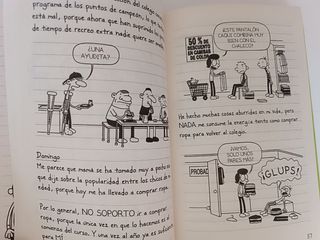 programa de los puntos de campeón, lo
está mal, porque ahora que han suprimido
de tiempo de recreo extra nadie quiere ser
¿UNA
AYUDITA?
Domingo
Me parece que mamá se ha tomado muy a pecho
que dije sobre la popularidad entre los chicos de
edad, porque hoy me ha llevado a comprar ropa.
Por lo general, NO SOPORTO ir a comprar
ropa, porque la única vez en que lo hacemos es al
comienzo del curso. Y una vez al año ya es suficiente
para MÍ.
50 % DE
DESCUENTO
EN CAMISAS
DE COLOR
¡ESTE PANTALÓN
CAQUI COMBINA MUY
BIEN CON EL
CHALECO!
He hecho muchas cosas aburridas en mi vida, pero
NADA me consume la energía tanto como comprar
ropa para volver al colegio.
¡VAMOS,
SOLO UNOS
PARES MÁS!
PROBAD
¡GLUPS!
37